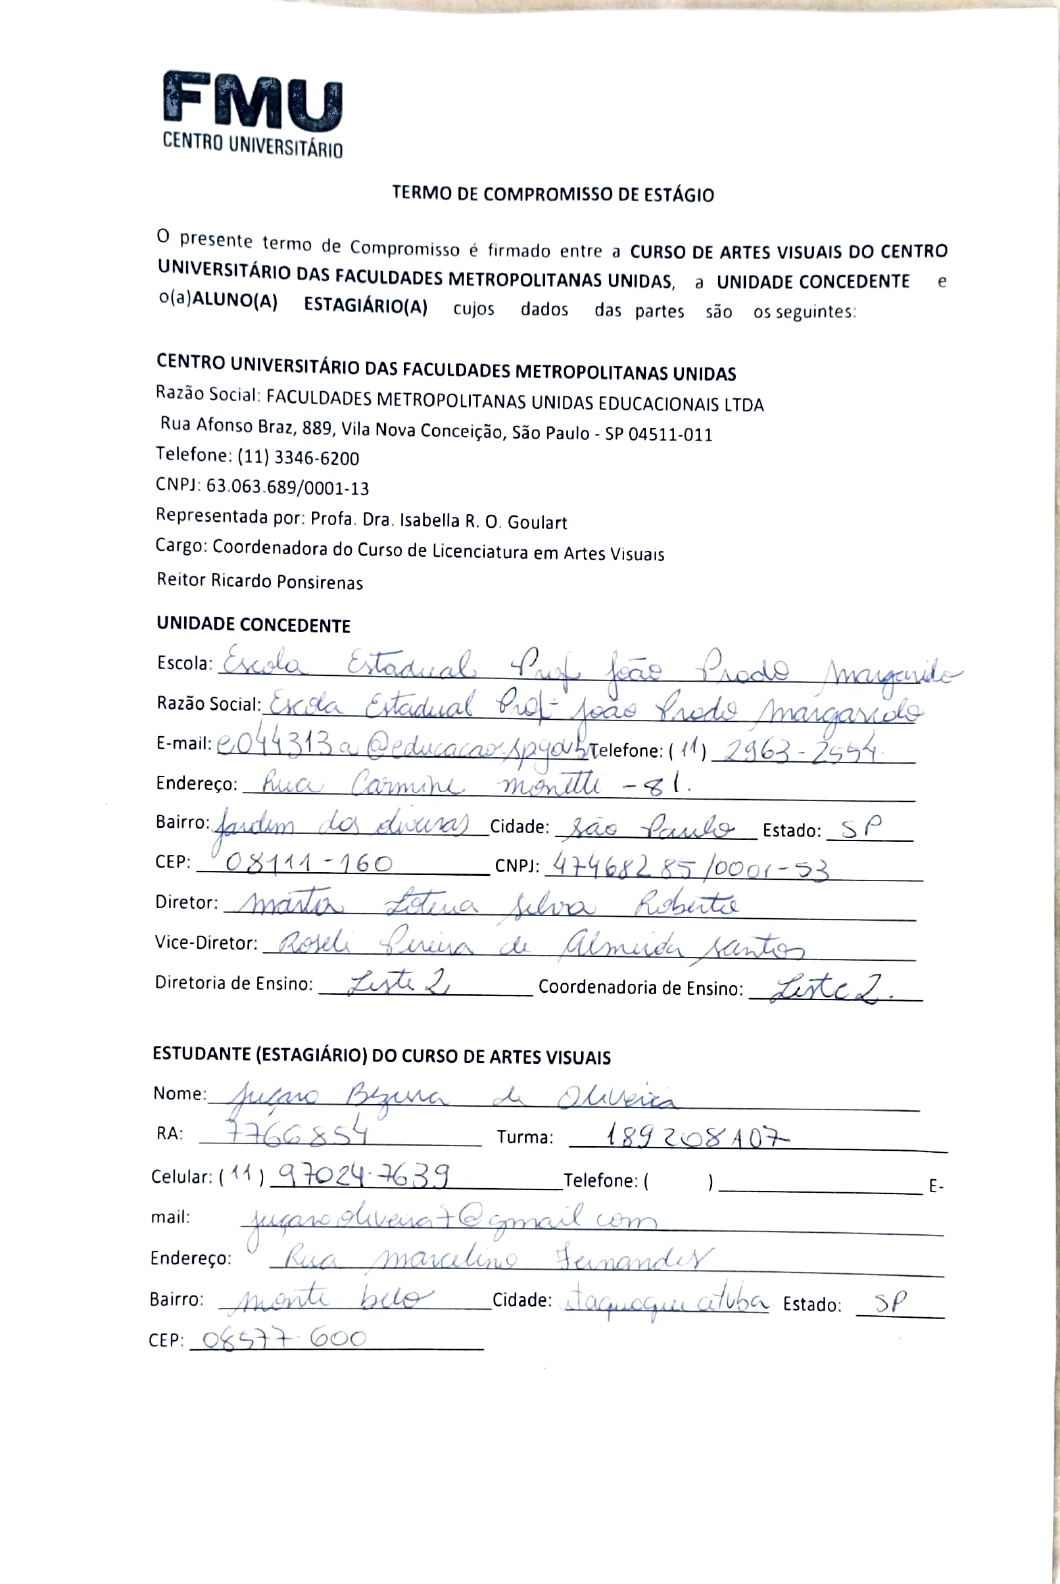 FMU
CENTRO UNIVERSITÁRIO
TERMO DE COMPROMISSO DE ESTÁGIO
O presente termo de Compromisso é firmado entre a CURSO DE ARTES VISUAIS DO CENTRO
UNIVERSITÁRIO DAS FACULDADES METROPOLITANAS UNIDAS, a UNIDADE CONCEDENTE e
o(a)ALUNO(A) ESTAGIÁRIO(A) cujos dados das partes são os seguintes:
CENTRO UNIVERSITÁRIO DAS FACULDADES METROPOLITANAS UNIDAS
Razão Social: FACULDADES METROPOLITANAS UNIDAS EDUCACIONAIS LTDA
Rua Afonso Braz, 889, Vila Nova Conceição, São Paulo - SP 04511-011
Telefone: (11) 3346-6200
CNPJ: 63.063.689/0001-13
Representada por: Profa. Dra. Isabella R. O. Goulart
Cargo: Coordenadora do Curso de Licenciatura em Artes Visuais
Reitor Ricardo Ponsirenas
UNIDADE CONCEDENTE
Escola: Escola Estadual Prof João Prado Margarido
Razão Social: Escola Estadual Prof João Prado Margarido
E-mail: e044313a@educacao.sp.gov.b Telefone: (11) 2963-2554
Endereço: Rua Carmine Monetti - 81.
Bairro: Jardim dos Cidade: São Paulo Estado: SP
CEP: 08111-160 CNPJ: 47468285/0001-53
Diretor: Silva Roberto
Vice-Diretor: Roseli Pereira de Almeida Santos
Diretoria de Ensino: Leste 2 Coordenadoria de Ensino: Leste 2.
ESTUDANTE (ESTAGIÁRIO) DO CURSO DE ARTES VISUAIS
Nome: Juçara Bezerra de Oliveira
RA: 7766854 Turma: 189208A07
Celular: (11) 97024-7639 Telefone: ( ) E-
mail: juçaraoliveira7@gmail com
Endereço: Rua Marcelino Fernandes
Bairro: Monte belo Cidade: Itaquaquecetuba Estado: SP
CEP: 08577-600